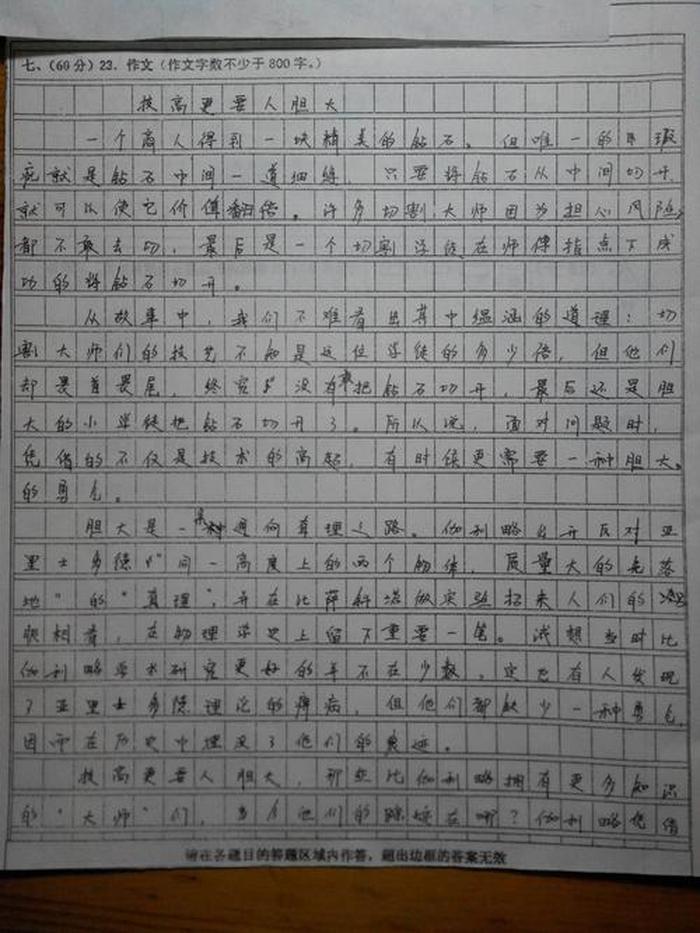 七、(60分)23. 作文(作文字数不少于800字。)
技高更要人胆大
一个商人得到一块精美的钻石。但唯一的瑕
疵就是钻石中间一道细缝,只要将钻石从中间切开,
就可以使它价值翻倍。许多切割大师因为担心风险,
都不敢去切,最后是一个切割学徒在师傅指点下成
功的将钻石切开。
从故事中,我们不难看出其中蕴涵的道理:切
割大师们的技艺不知是这位学徒的多少倍,但他们
却畏首畏尾,终究没有敢把钻石切开,最后还是胆
大的小学徒把钻石切开了。所以说,面对问题时,
凭借的不仅是技术的高超,有时候更需要一种胆大
的勇气。
胆大是一条通向真理之路。伽利略公开反对亚
里士多德“同一高度上的两个物体,质量大的先落
地”的“真理”,并在比萨斜塔做实验招来人们的
眼相看,在物理学史上留下重要一笔。试想当时比
伽利略学术研究更好的年不在少数,定也有人发现
了亚里士多德理论的弊病,但他们都缺少一种勇气,
因而在历史中埋没了他们的
技高更要人胆大,那些比伽利略拥有更多知识
的“大师”们,如今他们的踪迹在哪?伽利略凭借
请在各题目的答题区域内作答,超出边框的答案无效